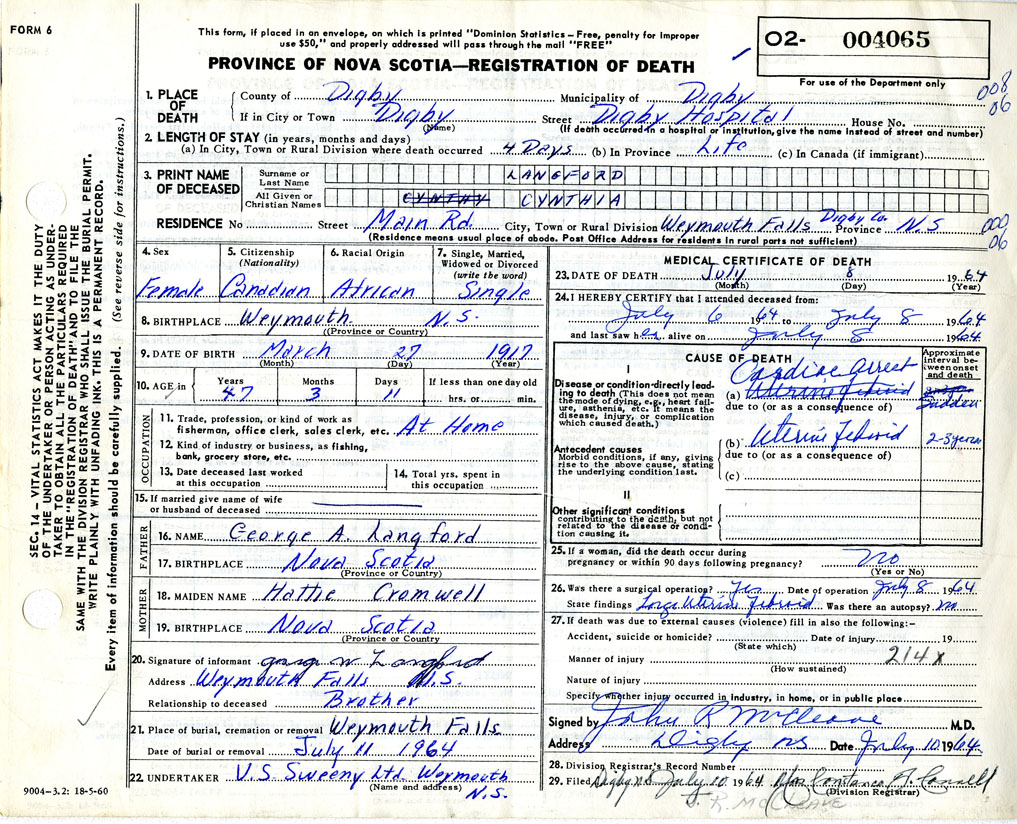 FORM 6
This form, if placed in an envelope, on which is printed "Dominion Statistics - Free, penalty for improper
use $50," and properly addressed will pass through the mail "FREE"
O2- 004065
PROVINCE OF NOVA SCOTIA—REGISTRATION OF DEATH
For use of the Department only
008
06
1. PLACE OF DEATH
County of Digby Municipality of Digby
If in City or Town Digby Street Digby Hospital House No.
(Name) (If death occurred in a hospital or institution, give the name instead of street and number)
2. LENGTH OF STAY (in years, months and days)
(a) In City, Town or Rural Division where death occurred 4 Days (b) In Province Life (c) In Canada (if immigrant)
3. PRINT NAME OF DECEASED
Surname or Last Name LANGFORD
All Given or Christian Names CYNTHY CYNTHIA
RESIDENCE No Street Main Rd. City, Town or Rural Division Weymouth Falls Digby Co. Province N.S
(Residence means usual place of abode. Post Office Address for residents in rural parts not sufficient)
000
06
4. Sex Female
5. Citizenship (Nationality) Canadian
6. Racial Origin African
7. Single, Married, Widowed or Divorced (write the word) Single
8. BIRTHPLACE Weymouth N.S.
(Province or Country)
9. DATE OF BIRTH March 27 1917
(Month) (Day) (Year)
10. AGE in Years 47 Months 3 Days 11 If less than one day old hrs. or min.
OCCUPATION
11. Trade, profession, or kind of work as
fisherman, office clerk, sales clerk, etc. At Home
12. Kind of industry or business, as fishing,
bank, grocery store, etc.
13. Date deceased last worked
at this occupation
14. Total yrs. spent in
this occupation
15. If married give name of wife
or husband of deceased
FATHER
16. NAME George A. Langford
17. BIRTHPLACE Nova Scotia
(Province or Country)
MOTHER
18. MAIDEN NAME Hattie Cromwell
19. BIRTHPLACE Nova Scotia
(Province or Country
20. Signature of informant George W Langford
Address Weymouth Falls N.S.
Relationship to deceased Brother
21. Place of burial, cremation or removal Weymouth Falls
Date of burial or removal July 11 1964
22. UNDERTAKER V.S. Sweeny Ltd. Weymouth
(Name and address) N.S.
9004-3.2: 18-5-60
MEDICAL CERTIFICATE OF DEATH
23. DATE OF DEATH July 8 1964
(Month) (Day) (Year)
24. I HEREBY CERTIFY that I attended deceased from:
July 6 1964 to July 8 1964
and last saw her alive on July 8 1964
CAUSE OF DEATH
Approximate interval between onset and death
I
Disease or condition directly leading to death (This does not mean the mode of dying, e.g., heart failure, asthenia, etc. It means the disease, injury, or complication which caused death.)
Cardiac arrest
(a) Uterine Fibroid Sudden
due to (or as a consequence of)
Antecedent causes
Morbid conditions, if any, giving rise to the above cause, stating the underlying condition last.
(b) Uterine Fibroid 2-3 years
due to (or as a consequence of)
(c)
II
Other significant conditions
contributing to the death, but not related to the disease or condition causing it.
25. If a woman, did the death occur during
pregnancy or within 90 days following pregnancy? No
(Yes or No)
26. Was there a surgical operation? Yes Date of operation July 8 1964
State findings Large Uterine Fibroid Was there an autopsy? no
27. If death was due to external causes (violence) fill in also the following:-
Accident, suicide or homicide? Date of injury 19
(State which)
Manner of injury 214x
(How sustained)
Nature of injury
Specify whether injury occurred in industry, in home, or in public place
Signed by John R McCleave M.D.
Address Digby NS Date July 10 1964
28. Division Registrar's Record Number
29. Filed Digby N.S July 10 1964 Mrs Constance
(Division Registrar)
J. R. McCleave
SEC. 14 - VITAL STATISTICS ACT MAKES IT THE DUTY
OF THE UNDERTAKER OR PERSON ACTING AS UNDER-
TAKER TO OBTAIN ALL THE PARTICULARS REQUIRED
IN THE "REGISTRATION OF DEATH" AND TO FILE THE
SAME WITH THE DIVISION REGISTRAR WHO SHALL ISSUE THE BURIAL PERMIT.
WRITE PLAINLY WITH UNFADING INK. THIS IS A PERMANENT RECORD.
Every item of information should be carefully supplied. (See reverse side for instructions.)